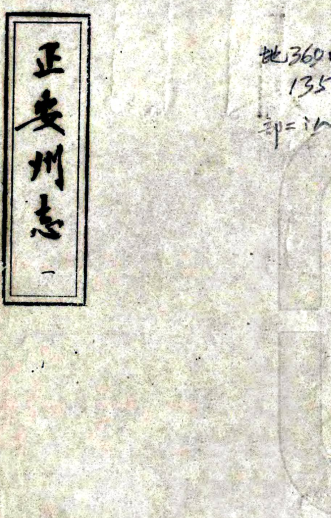 正安州志
一
地360
135